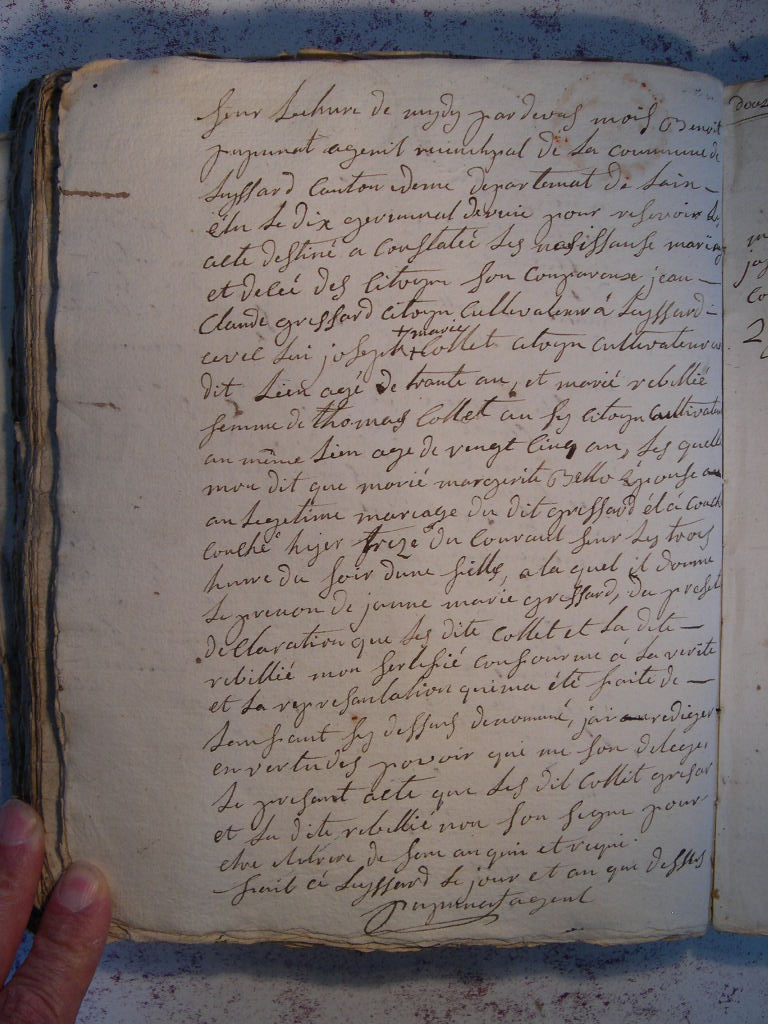 sur Lechure de mydy pardevas mois Benoit
papunat agenit municipal de la commune de
Luyssard Canton ideme departemat de Lain
élu le dix germinal dernie pour reservoir les
acte destiné a Constatée les nasissanse mariag
et decée des Citoyin son Compareuxe jean
Claude gressard Citoyin Cultivateur á Luyssard
avec lui joseph marie Collet citoyin cultivateur au
dit Lien agé de trante an, et marié rebillié
femme de thomas Collet au sy citoyn Cultivateu
au même Lien age de vengt Cinq an, Les quelle
mon dit que marié margerite Bello Epouse au
an Legetime mariage du dit gressard ét á couch
Couché hijer treze du Courant sur Ley trois
hure du soir dune fielle, a la quel il donne
Le prenon de janne marie gressard, Da preset
déClaration que les dite Collet et La dite
rebillié mon sertifié confourme á La verite
et La represantation quima été faite de
Lansfant sy dessus denomané, jai redieger
en vertu des povoir qui me son deleges
Le presant acte que Les dit Collit gresar
et La dite rebillié non son segne pour
fait á Luyssard Le jour et an que dessus
papunat agent
Douz
2